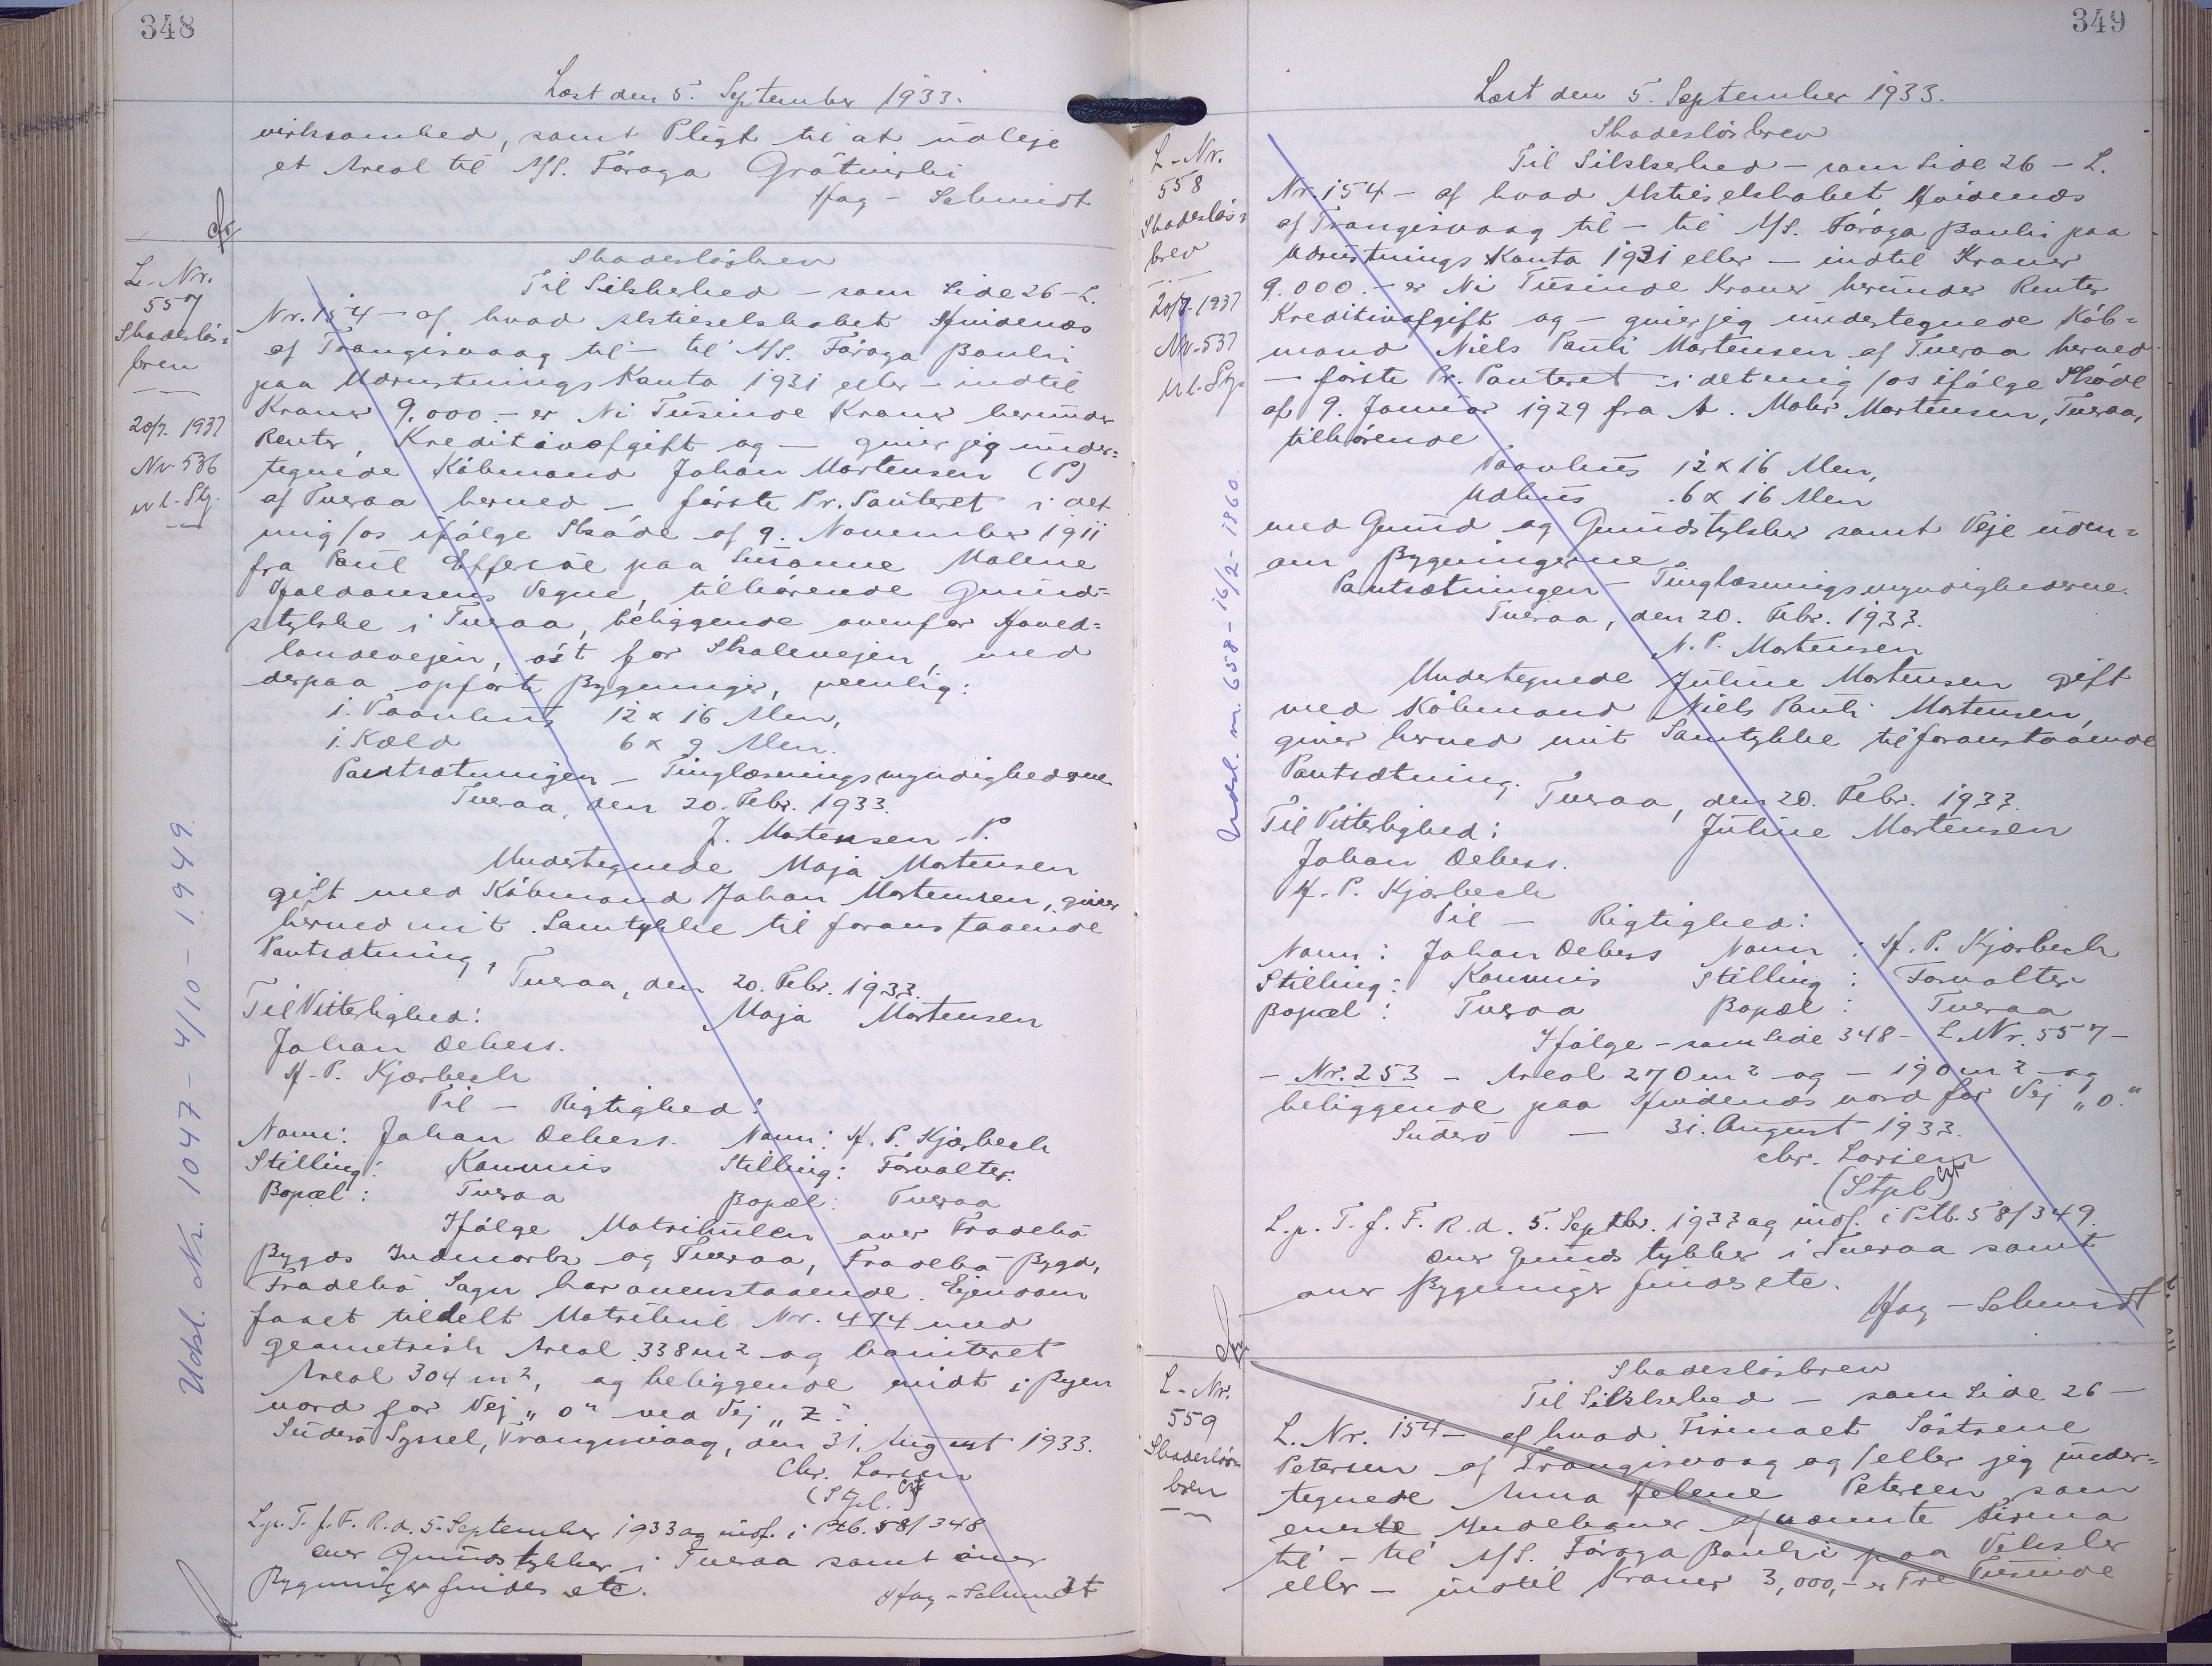 348
Læst den 5. September 1933.
virksomhed, samt Pligt til at udleje
et Areal til A/S. Föroya Grótvirki
Hag - Schmidt
L.-Nr.
557
Skadeslös=
brev
20/7. 1937
Nr. 536
ul. Stg.
Skadeslösbrev
Til Sikkerhed - som Side 26 - L.
Nr. 154 - af hvad Aktieselskabet Hvidenæs
af Trangisvaag til - til A/S. Föroya Banki
paa Udrustnings Konto 1931 eller - indtil
Kroner 9.000 - er Ni Tusinde Kroner herunder
Renter, Kreditivafgift og - giver jeg under=
tegnede Köbmand Johan Mortensen (P)
af Tveraa herved - förste Pr. Panteret i det
mig/os ifölge Sköde af 9. November 1911
fra Poul Effersöe paa Susanne Malene
Hjaldansens Vegne, tilhörende Grund=
stykke i Tveraa, beliggende ovenfor Hoved=
landevejen, öst for Skolevejen, med
derpaa opförte Bygninger, nemlig:
1. Vaanhus 12 x 16 Alen,
1. Kæld 6 x 9 Alen.
Pantsætningen - Tinglæsningsmyndighederne
Tveraa, den 20. Febr. 1933.
J. Mortensen P.
Undertegnede Maja Mortensen
gift med Köbmand Johan Mortensen, giver
herved mit Samtykke til foranstaaende
Pantsætning,
Tveraa, den 20. Febr. 1933.
Til Vitterlighed: Maja Mortensen
Johan Debess.
H. P. Kjærbech
Til - Rigtighed:
Navn: Johan Debess. Navn: H. P. Kjærbech
Stilling: Kommis Stilling: Forvalter.
Bopæl: Tveraa Bopæl: Tveraa
Ifölge Matrikulen over Frodebö
Bygds Indmark og Tveraa, Frodebö Bygd,
Frodebö Sogn har ovenstaaende Ejendom
faaet tildelt Matrikul Nr. 474 med
geometrisk Areal 338 m² og boniteret
Areal 304 m², og beliggende midt i Byen
nord for Vej "O" ved Vej "Z".
Suderö Syssel, Trangisvaag, den 31. August 1933.
Chr. Larsen
(Stpl.)
L.p. T. f. F. R. d. 5. September 1933 og indf. i Ptb. 58/348
over Grundstykker i Tveraa samt over
Bygninger findes etc.
Hag - Schmidt
Udsl. Nr. 1047 - 4/10 - 1949.
349
Læst den 5. September 1933.
L.-Nr.
558
Skadeslös=
brev
20/7. 1937
Nr. 537
ul. Stg.
Skadeslösbrev
Til Sikkerhed - som Side 26 - L.
Nr. 154 - af hvad Aktieselskabet Hvidenæs
af Trangisvaag til - til A/S. Föroya Banki paa
Udrustnings Konto 1931 eller - indtil Kroner
9.000.- er Ni Tusinde Kroner herunder Renter
Kreditivafgift og - giver jeg undertegnede Köb=
mand Niels Pauli Mortensen af Tveraa herved
- förste Pr. Panteret - i det mig/os ifölge Sköde
af 9. Januar 1929 fra A. Mohr Mortensen, Tveraa,
tilhörende
Vaanhus 12 x 16 Alen,
Udhus 6 x 16 Alen
med Grund og Grundstykker samt Veje uden=
om Bygningerne
Pantsætningen - Tinglæsningsmyndighederne.
Tveraa, den 20. Febr. 1933.
N. P. Mortensen
Undertegnede Juline Mortensen gift
med Köbmand Niels Pauli Mortensen,
giver herved mit Samtykke til foranstaaende
Pantsætning.
Tveraa, den 20. Febr. 1933.
Til Vitterlighed: Juline Mortensen
Johan Debess.
H. P. Kjærbech
Til - Rigtighed:
Navn: Johan Debess Navn: H. P. Kjærbech
Stilling: Kommis Stilling: Forvalter
Bopæl: Tveraa Bopæl: Tveraa
Ifölge - som Side 348 - L. Nr. 557 -
- Nr. 253 - Areal 270 m² og - 190 m² - og
beliggende paa Hvidenæs nord for Vej "O."
Suderö - 31. August 1933.
Chr. Larsen
(Stpl.)
L.p. T. f. F. R. d. 5. Septbr. 1933 og indf. i Ptb. 58/349.
over Grundstykker i Tveraa samt
over Bygninger findes etc.
Hag - Schmidt
Udsl. nr. 658 - 16/2 - 1960.
L.-Nr.
559
Skadeslös=
brev
Skadeslösbrev
Til Sikkerhed - som Side 26 -
L. Nr. 154 - af hvad Firmaet Söstrene
Petersen af Trangisvaag og/eller jeg under=
tegnede Anna Helene Petersen som
eneste Indehaver af nævnte Firma
til - til A/S. Föroya Banki paa Veksler
eller - indtil Kroner 3,000,- er Tre Tusinde